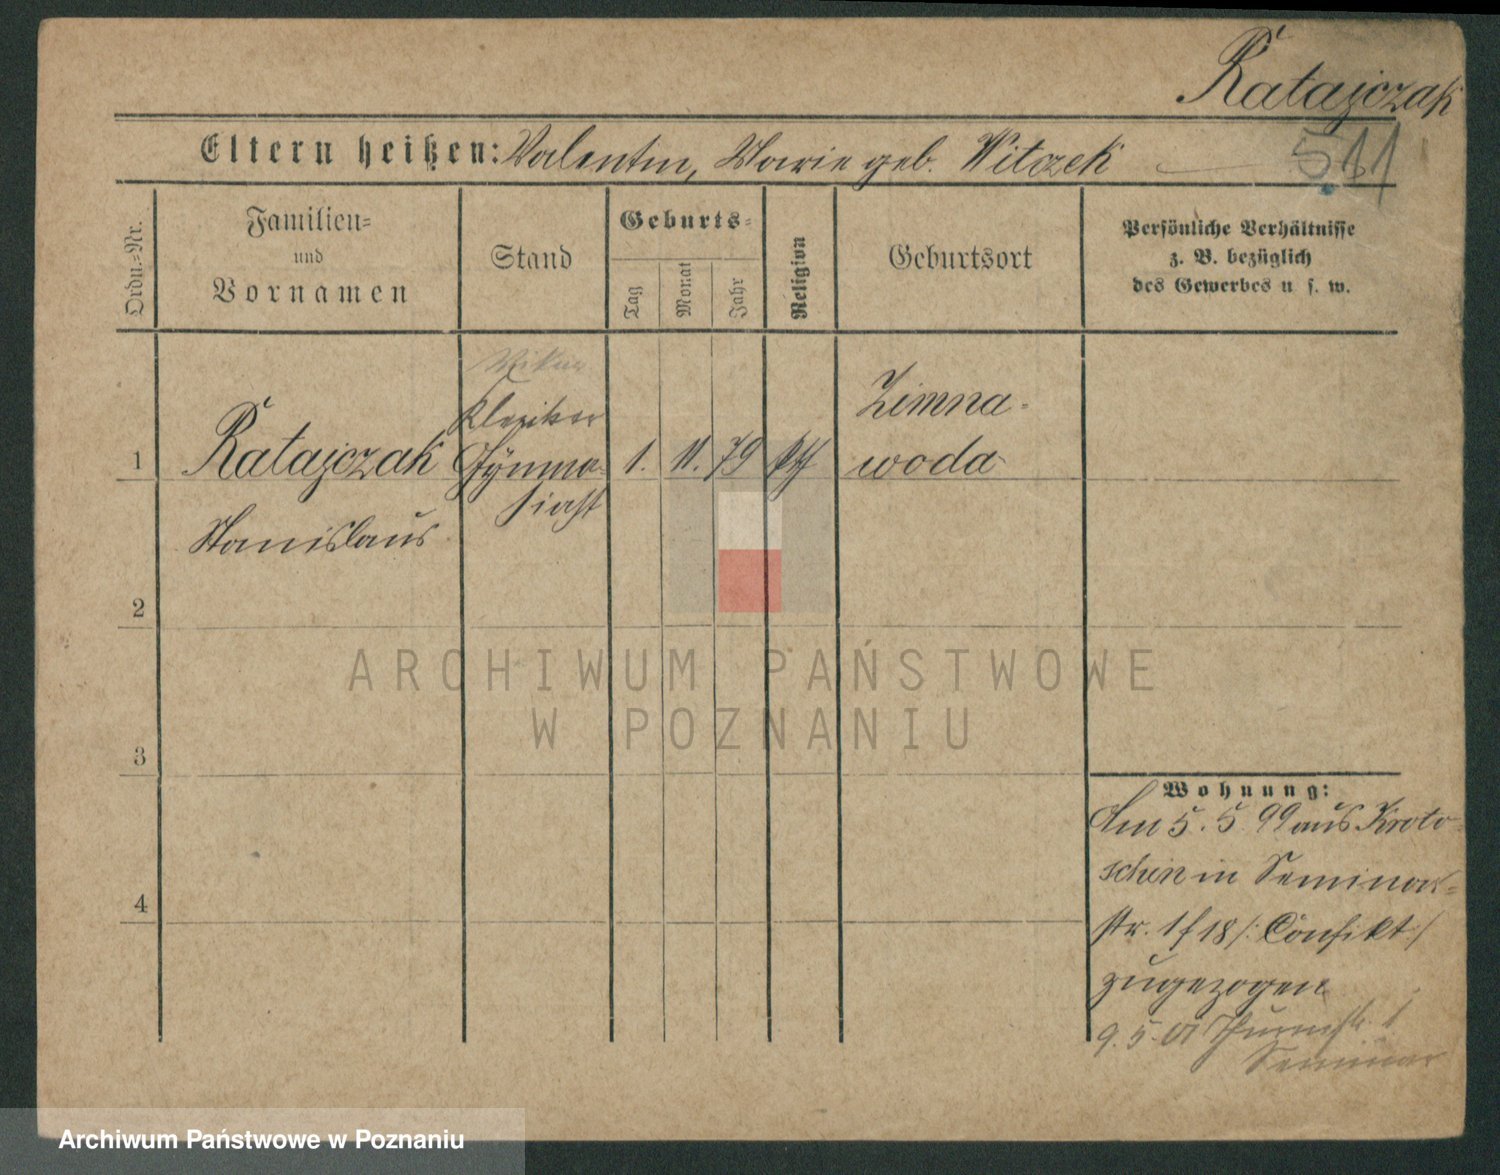 Ratajczak
511
Eltern heißen: Valentin, Marie geb. Witczek
Ordn.=Nr.
Familien=
und
Vornamen
Stand
Geburts=
Tag
Monat
Jahr
Religion
Geburtsort
Persönliche Verhältnisse
z. B. bezüglich
des Gewerbes u s. w.
Vikar
Kleriker
1 Ratajczak Gÿmna- 1. 11. 79 Zimna-
siast woda
Stanislaus
2
3
4
Wohnung:
Am 5. 5. 99 aus Kroto-
schin in Seminar=
str. 1 f 18 /: Confikt :/
zugezogen
9. 5. 01 Thurmstr. 1
Seminar
ARCHIWUM PAŃSTWOWE
W POZNANIU
Archiwum Państwowe w Poznaniu